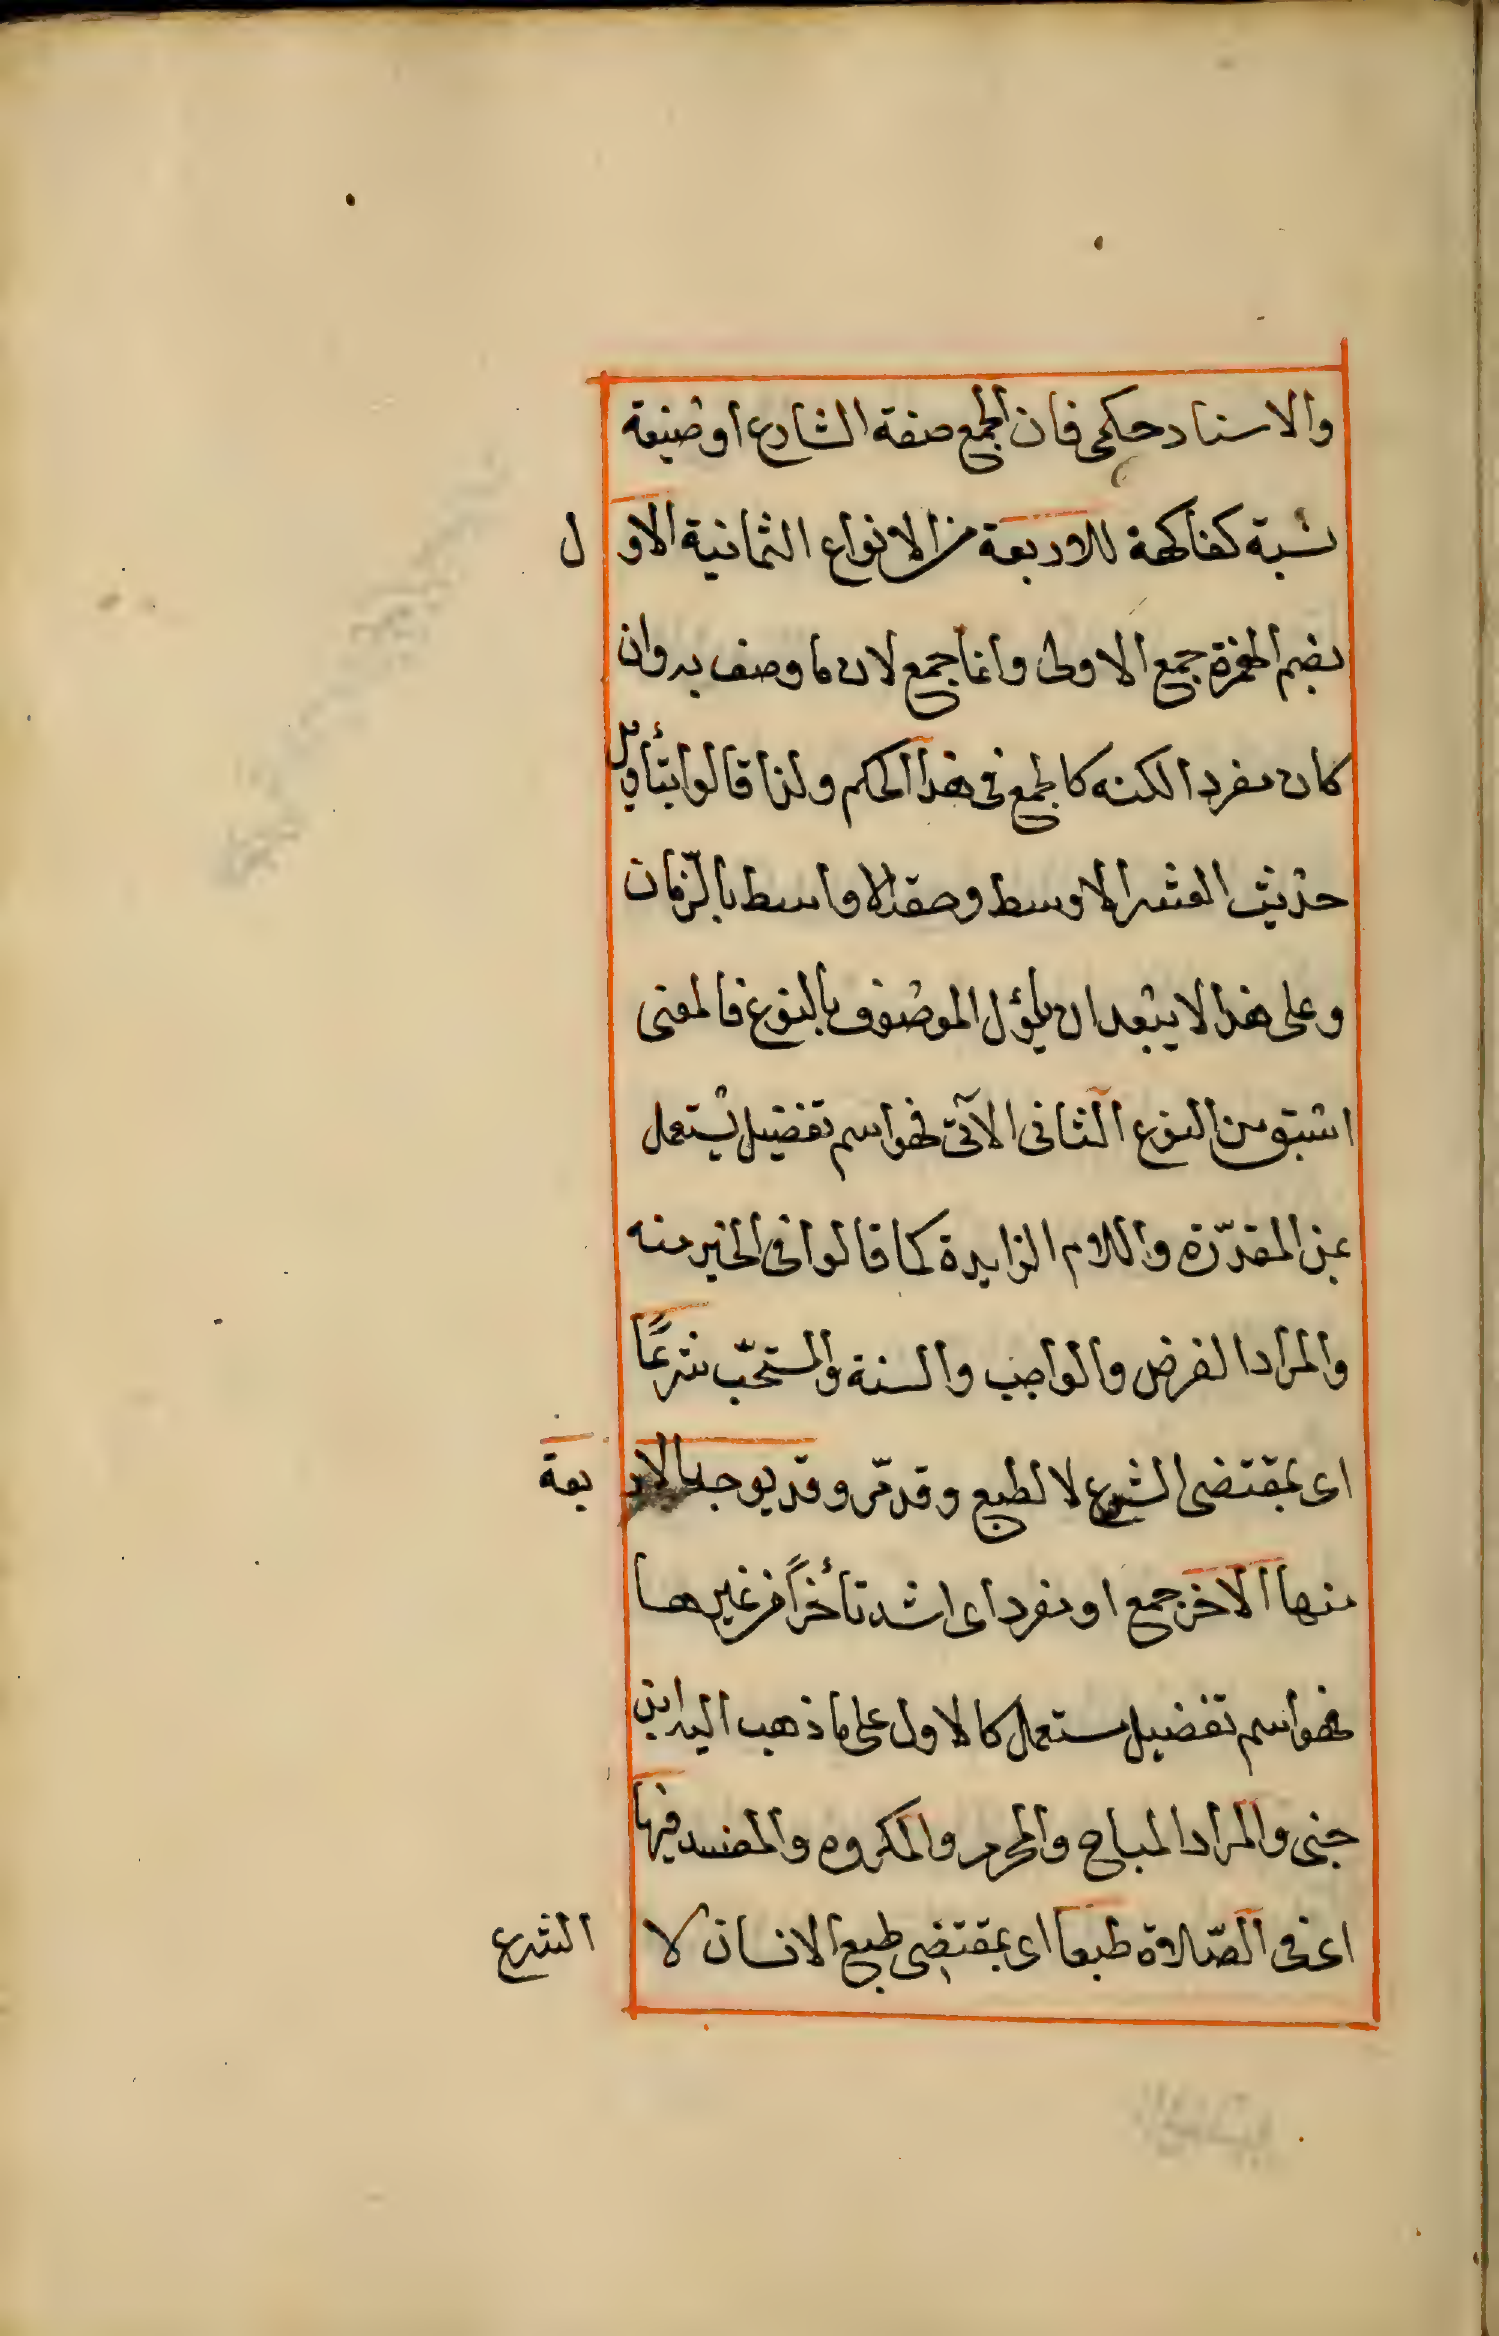 والاسناد حكمى فان الجمع صفة الشارع او صيغة
نسبة كفاكهة للاربعة من الانواع الثمانية الاول
بضم الهمزة جمع الاولى وانما جمع لان ما وصف به وان
كان مفردا لكنه كالجمع فى هذا الحكم ولذا قالوا بتأويل
حديث العشر الاوسط وصقه الاواسط بالزّمان
وعلى هذا لا يبعد ان يأول الموصوف بالنوع فالمعنى
اسبق من النوع الثانى الآتى فهو اسم تفضيل يستعمل
بمن المقدّرة واللام الزايدة كما قالوا فى الخير منه
والمراد الفرض والواجب والسنة والمستحبّ شرعًا
اى بمقتضى الشرع لا الطبع وقد مّر وقد يوجد الاربعة
منها الاخر جمع او مفرد اى اشد تأخراً من غيرها
فهو اسم تفضيل مستعمل كالاول على ما ذهب اليه ابن
جنى والمراد المباح والمحرم والمكروه والمفسد فيها
اى فى الصّلاة طبعا اى بمقتضى طبع الانسان لا الشرع